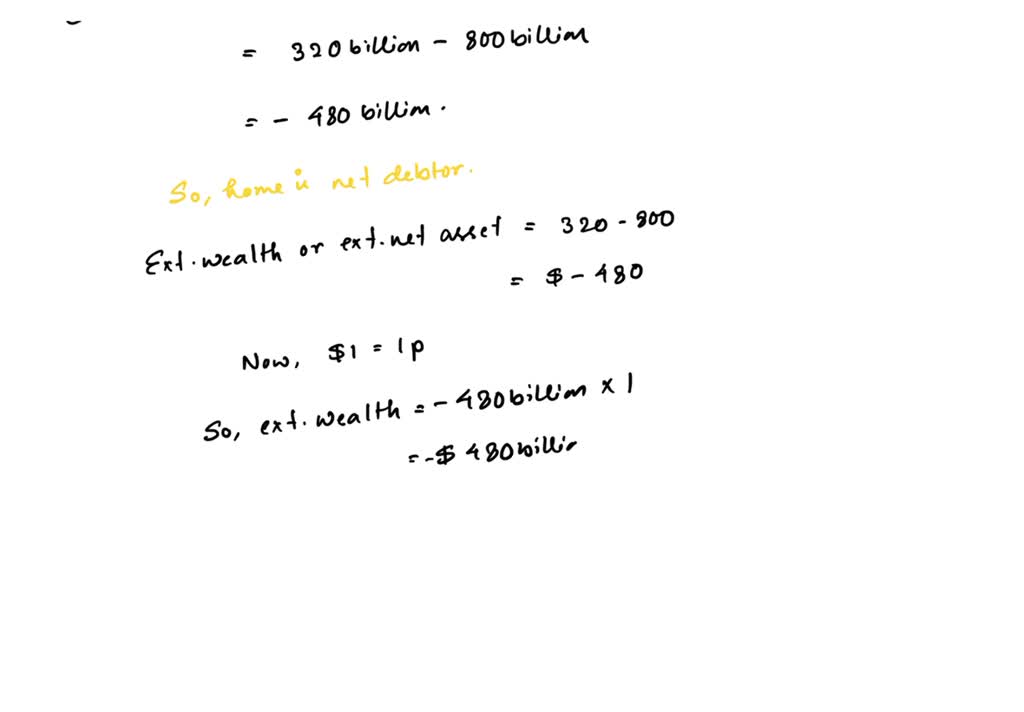 = 320 billion - 800 billion
= - 480 billion.
So, home is net debtor.
Ext. wealth or ext. net asset = 320 - 800
= $ - 480
Now, $1 = 1p
So, ext. wealth = - 480 billion x 1
= -$ 480 billi